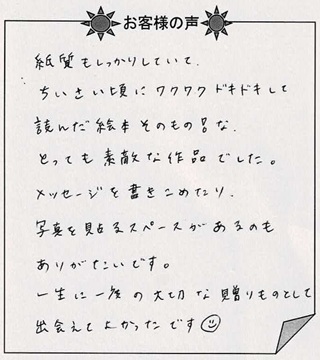 お客様の声
紙質もしっかりしていて、
ちいさい頃にワクワクドキドキして
読んだ絵本そのものな、
とっても素敵な作品でした。
メッセージを書きこめたり、
写真を貼るスペースがあるのも
ありがたいです。
一生に一度の大切な贈りものとして
出会えてよかったです